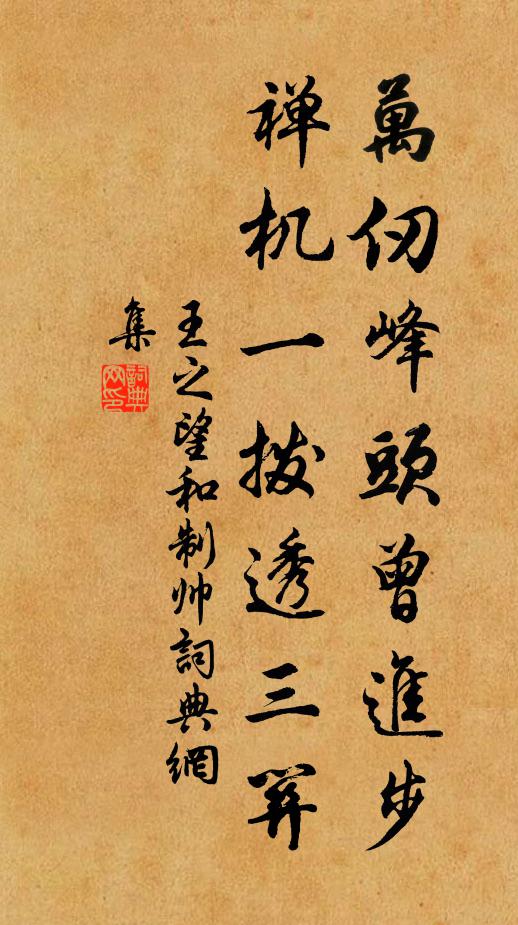 萬仞峰頭曾進步
禅机一拨透三关
王之望和制帅詞典網
集
詞典
网印